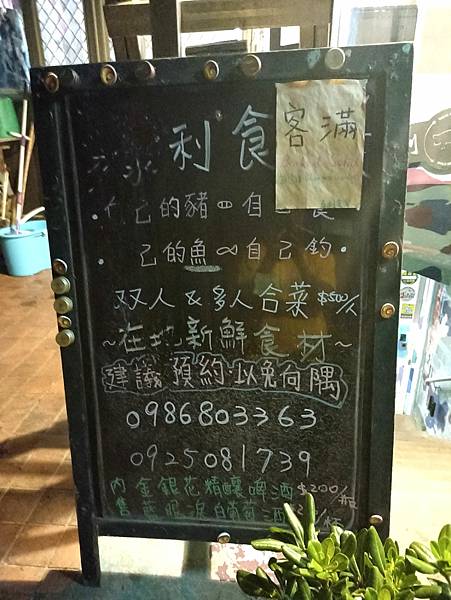 客滿
利食
己的豬 自己養
己的魚∞自己釣
双人&多人合菜$500/人
~在地新鮮食材~
建議預約以免向隅
0986803363
0925081739
內金銀花精釀啤酒$200/瓶
售 白葡萄酒